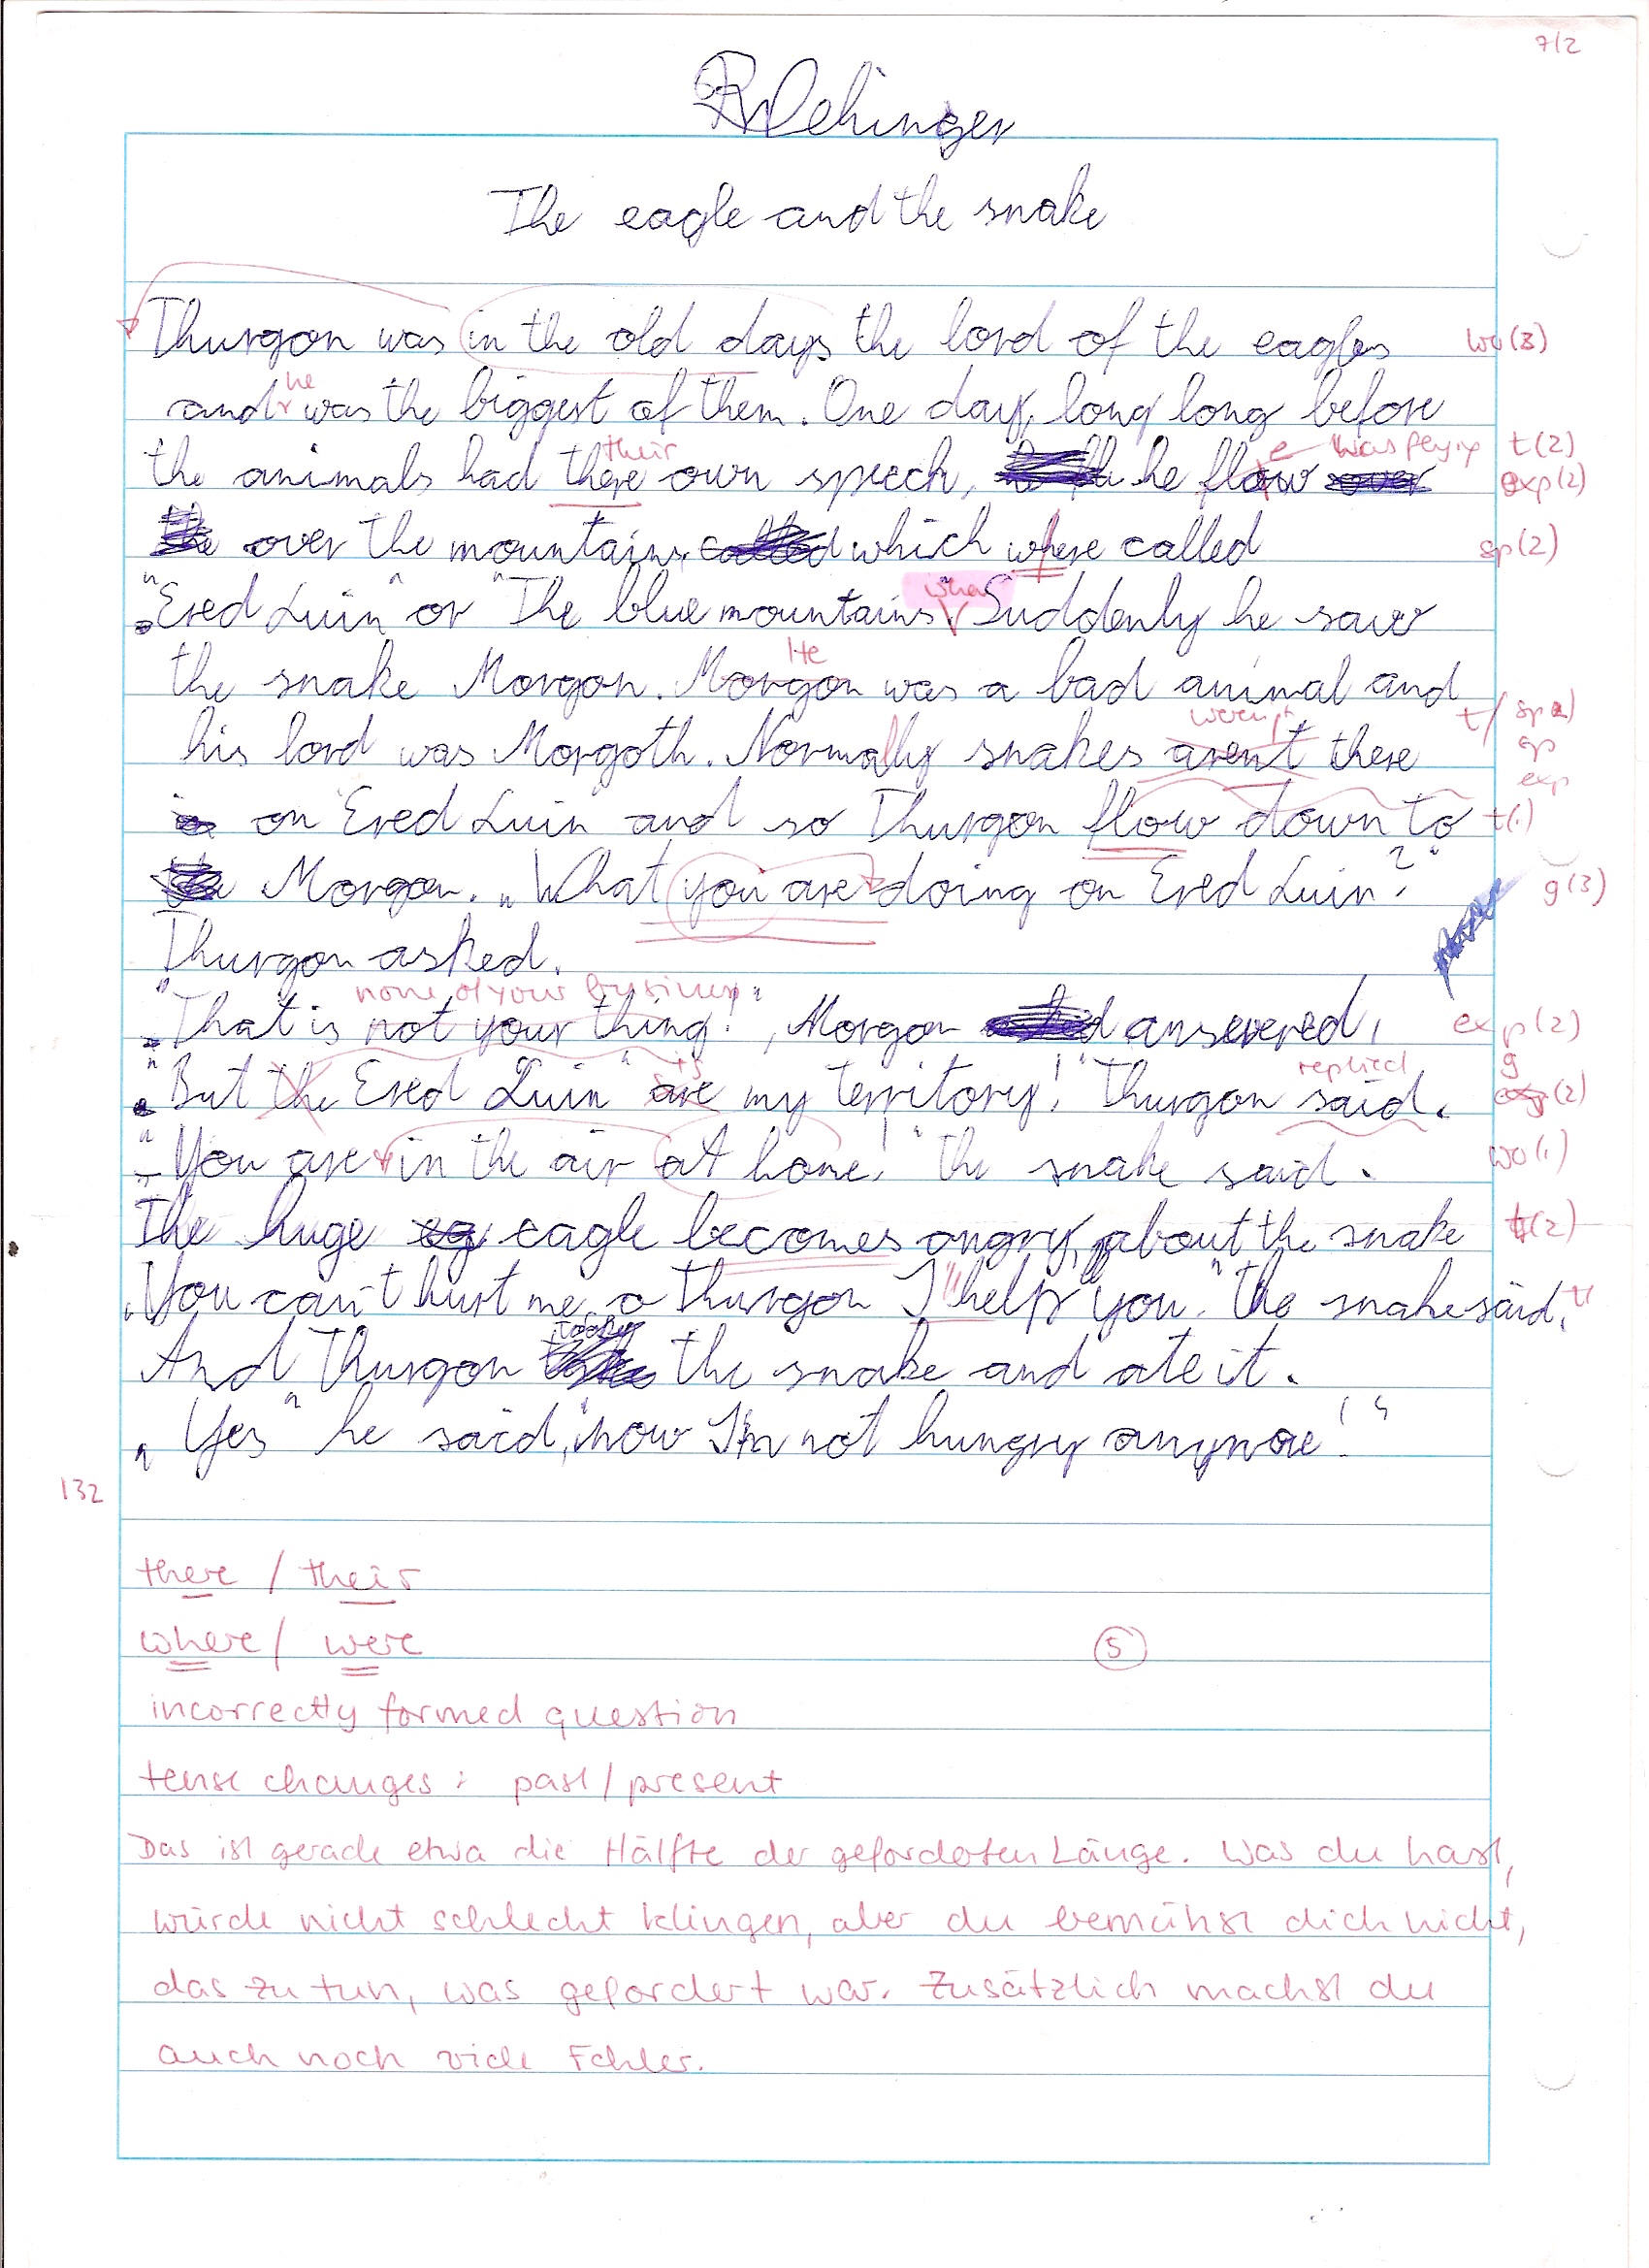 7/2
The eagle and the snake
Thurgon was in the old days the lord of the eagles wo(3)
he
and was the biggest of them. One day, long long before
their e was flying t(2)
the animals had there own speech, he flow exp(2)
over the mountains which where called sp(2)
when
"Ered Luin" or "The blue mountains". Suddenly he saw
He
the snake Morgon. Morgon was a bad animal and
weren't t/ sp
his lord was Morgoth. Normally snakes aren't there gp
exp
on "Ered Luin" and so Thurgon flow down to t(1)
Morgon. „What you are doing on Ered Luin?" g(3)
Thurgon asked.
none of your business
„That is not your thing!", Morgon ansevered, exp(2)
is replied g
„But the "Ered Luin" are my territory!" Thurgon said. (2)
„You are in the air at home!" the snake said. wo(1)
The huge eagle becomes angry about the snake t(2)
„You can't hurt me o Thurgon I'll help you." the snake said. t1
And Thurgon took the snake and ate it.
„Yes" he said, "now I'm not hungry anymore!"
132
there / their
where / were
5
incorrectly formed question
tense changes: past/present
Das ist gerade etwa die Hälfte der geforderten Länge. Was du hast,
würde nicht schlecht klingen, aber du bemühst dich nicht,
das zu tun, was gefordert war. Zusätzlich machst du
auch noch viele Fehler.